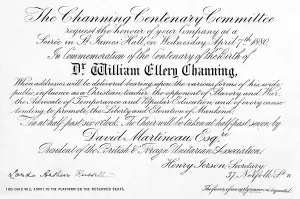 The Channing Centenary Committee
request the honour of your Company at a
Soirée in St James' Hall, on Wednesday, April 7th 1880,
In Commemoration of the Centenary of the Birth of
Dr William Ellery Channing,
When addresses will be delivered bearing upon the various forms of his wide
public influence as Christian teacher, the opponent of Slavery and War,
the Advocate of Temperance and Popular Education, and of every cause
tending to promote the Liberty and Elevation of Mankind.
Tea at half past six o'clock. The Chair will be taken at half past seven by
David Martineau, Esqre
President of the British & Foreign Unitarian Association.
Henry Ierson, Secretary
37 Norfolk St
Lord Arthur Russell
THIS CARD WILL ADMIT TO THE PLATFORM OR THE RESERVED SEATS.
The favor of an early answer is requested.